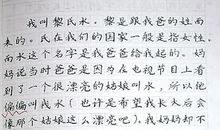 我叫黎氏水。黎是跟我爸的姓而
来的。氏在我们的国家一般是指女性。
而水这个名字是我爸爸给我起的。妈
妈说当时爸爸是因为在电视节目上看
到了一个很漂亮的姑娘叫水，所以他
偏偏叫我水（也许是希望我长大后会
像那个姑娘这么漂亮吧）。我妈妈却不